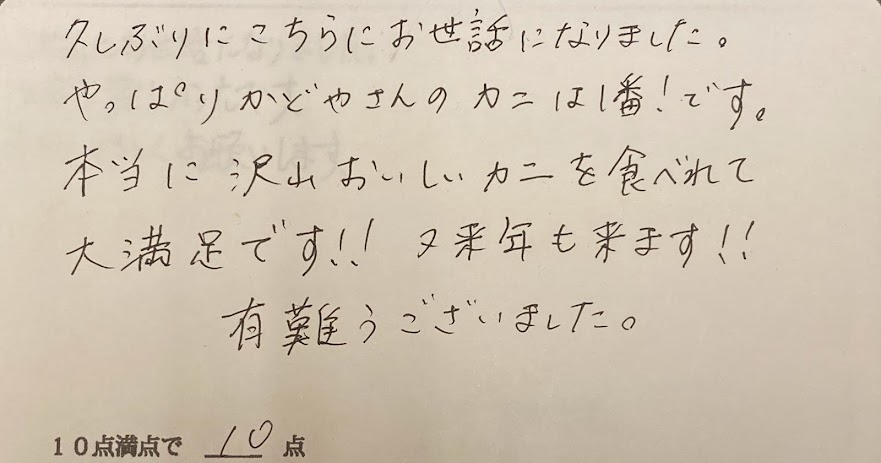 久しぶりにこちらにお世話になりました。
やっぱりかどやさんのカニは1番!です。
本当に沢山おいしいカニを食べれて
大満足です!! 又来年も来ます!!
有難うございました。
10点満点で 10 点